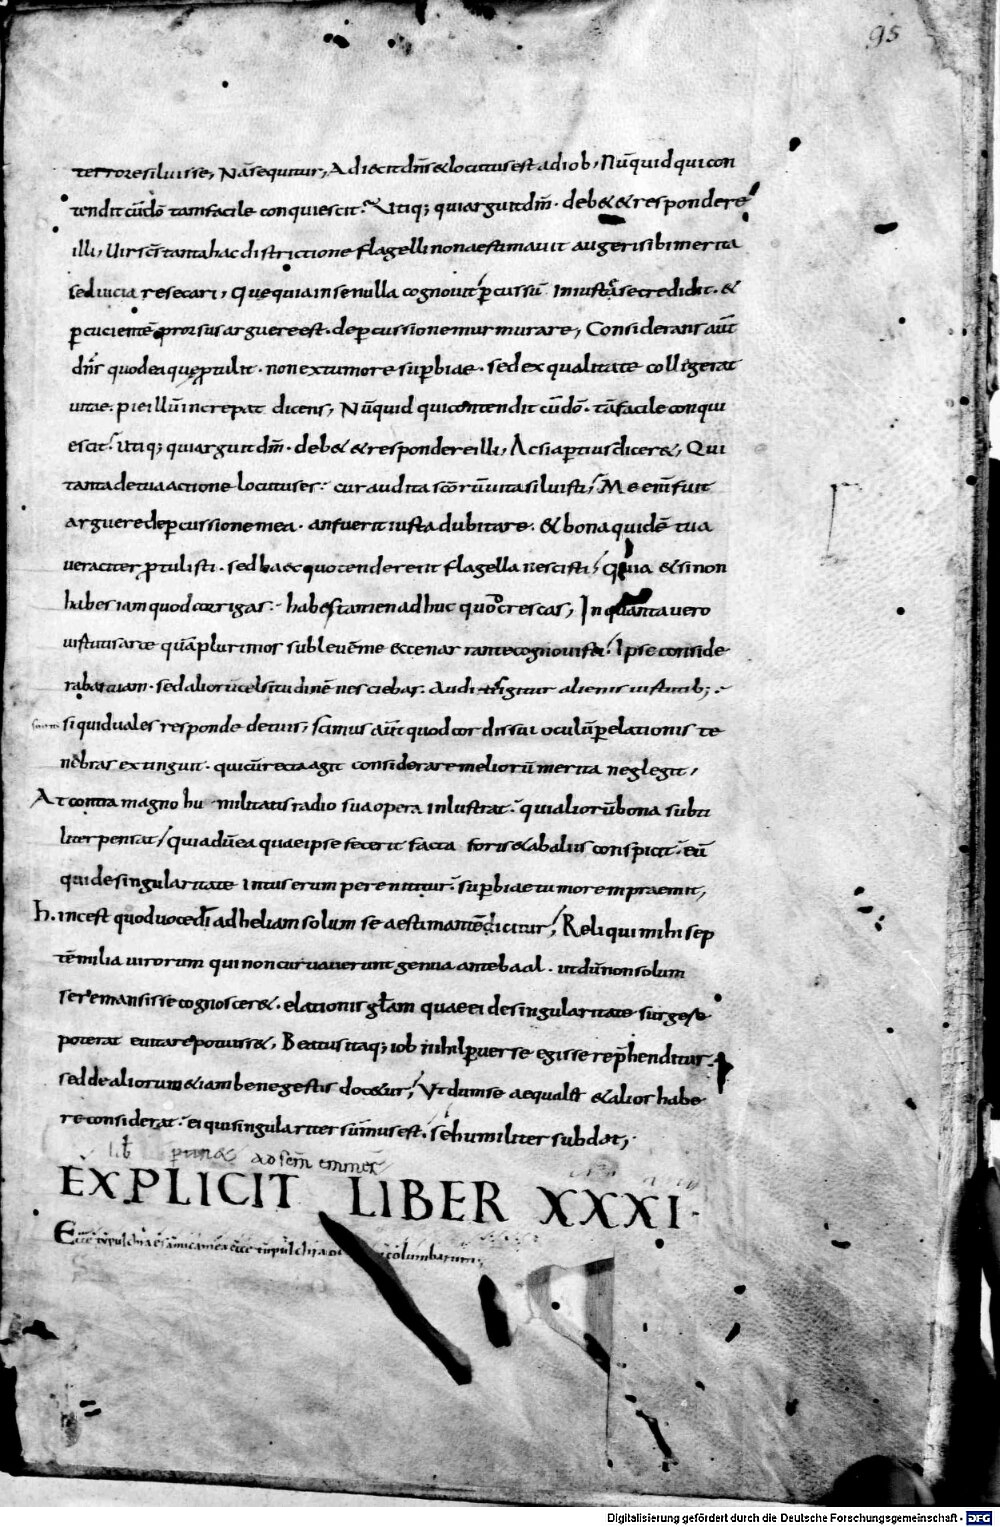 95
terrore siluisse, Nā sequitur, Adiecit dñs & locutus est ad iob, Nūquid qui con
tendit cū dō tam facile conquiescit. Utiq; qui arguit dm̄. deb& & respondere
illi, Uir scs̄ tanta hac districtione flagelli non aestimauit augeri sibi merita
sed uicia resecari, Que quia in se nulla cognouit ꝑcussū iniuste se credidit. &
ꝑcucientē prorsus arguere est. de ꝑcussione murmurare, Considerans aūt
dn̄s quod ea quę ꝓtulit. non ex tumore suꝑbiae. sed ex qualitate colligerat
uitae. pie illū increpat dicens, Nūquid qui contendit cū dō. tā facile conqui
escit. utiq; qui arguit dm̄. deb& & respondere illi, Ac si aꝑtius dicer&, Qui
tanta de tua actione locutus es: cur audita scōrū uita siluisti, Me enī fuit
arguere de ꝑcussione mea. an fuerit iusta dubitare. & bona quidē tua
ueraciter ꝓtulisti. sed haec quo tenderent flagella nescisti, Quia & si non
habes iam quod corrigas. habes tamen adhuc quo crescas, In quanta uero
uirtutis arce quā plurimos subleuē me & cenarrante cognouisti. Ipse conside
rabas uiam. sed aliorū celsitudinē nesciebas. Auditis igitur alienis uirtutib;.
si quid uales responde de tuis, scimus aūt quod cordis sui oculū ꝑ elationis te
nebras extinguit. qui cū recta agit considerare meliorū merita neglegit,
At contra magno humilitatis radio sua opera inlustrat. qui aliorū bona subti
liter pensat, quia dū ea quae ipse fecerit facta foris & ab aliis conspicit. eū
qui de singularitate intus erumpere nititur. suꝑbiae tumorem praemit,
h.inc est quod uoce dī ad heliam solum se aestimantē dicitur, Reliqui mihi sep
tē milia uirorum qui non curuauerunt genua ante baal. ut dū non solum
se remansisse cognoscer&. elationis glām quae ei de singularitate surgere
poterat euitare potuiss&, Beatus itaq; iob nihil ꝑuerse egisse reprehenditur.
sed de aliorum &iam bene gestis doc&ur, Ut dum se aequales & alios habe
re considerat. ei qui singulariter sūmus est. se humiliter subdat,
lib ad scm̄ emmer
EXPLICIT LIBER XXXI.
Ecce tu pulchra es amica mea ecce tu pulchra columbarum
Digitalisierung gefördert durch die Deutsche Forschungsgemeinschaft - DFG